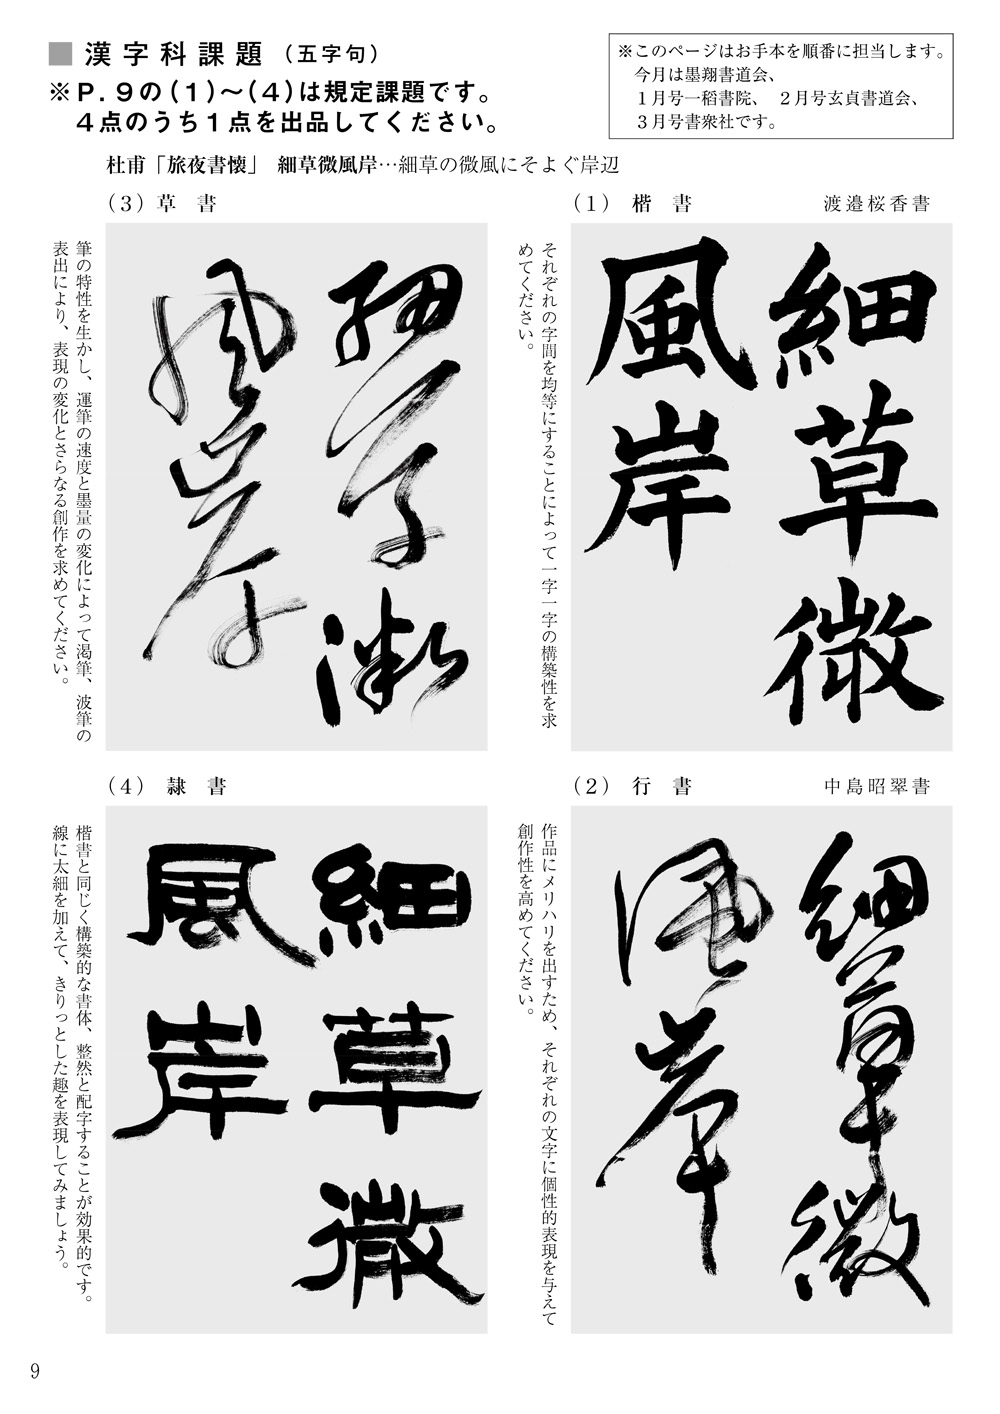 ■漢字科課題（五字句）
※P.９の(１)～(４)は規定課題です。
４点のうち１点を出品してください。
※このページはお手本を順番に担当します。
今月は墨翔書道会、
１月号一稻書院、　２月号玄貞書道会、
３月号書衆社です。
杜甫「旅夜書懐」　細草微風岸…細草の微風にそよぐ岸辺
(１)　楷　書　渡邉桜香書
細草微
風岸
それぞれの字間を均等にすることによって一字一字の構築性を求
めてください。
(２)　行　書　中島昭翠書
細草微
風岸
作品にメリハリを出すため、それぞれの文字に個性的表現を与えて
創作性を高めてください。
(３)　草　書
細草微
風岸
筆の特性を生かし、運筆の速度と墨量の変化によって渇筆、波筆の
表出により、表現の変化とさらなる創作を求めてください。
(４)　隷　書
細草微
風岸
楷書と同じく構築的な書体、整然と配字することが効果的です。
線に太細を加えて、きりっとした趣を表現してみましょう。
9